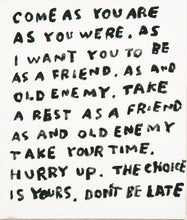 COME AS YOU ARE
AS YOU WERE. AS
I WANT YOU TO BE
AS A FRIEND. AS AND
OLD ENEMY. TAKE
A REST AS A FRIEND
AS AND OLD ENEMY
TAKE YOUR TIME.
HURRY UP. THE CHOICE
IS YOURS. DON'T BE LATE